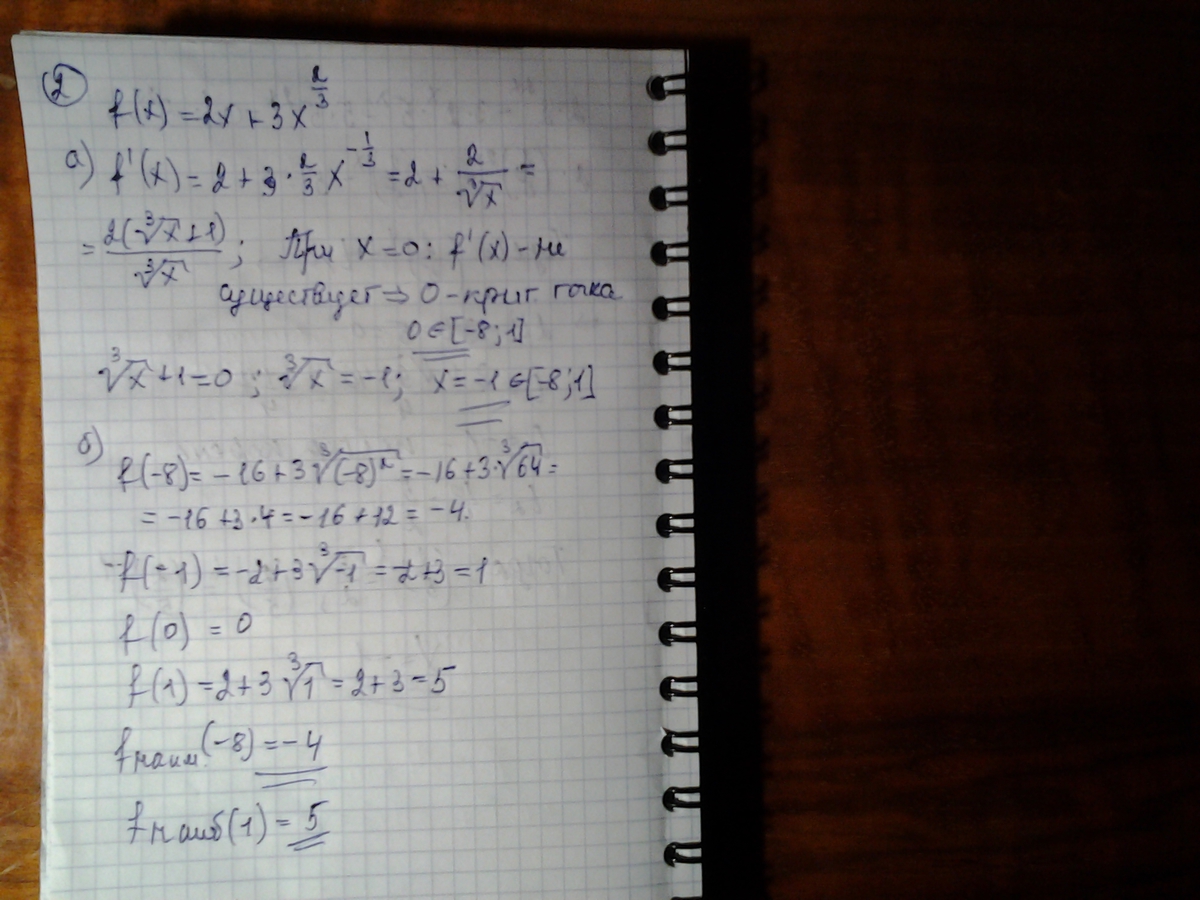 ② f(x) = 2x + 3x^(2/3)
а) f'(x) = 2 + 3 · 2/3 x^(-1/3) = 2 + 2/∛x =
= 2(∛x + 1)/∛x ; При x = 0: f'(x) - не
существует ⇒ 0 - крит. точка
0 ∈ [-8; 1]
∛x + 1 = 0 ; ∛x = -1; x = -1 ∈ [-8; 1]
б)
f(-8) = -16 + 3∛(-8)² = -16 + 3·∛64 =
= -16 + 3·4 = -16 + 12 = -4.
f(-1) = -2 + 3∛-1 = -2+3 = 1
f(0) = 0
f(1) = 2 + 3∛1 = 2 + 3 = 5
f наим. (-8) = -4
f наиб (1) = 5